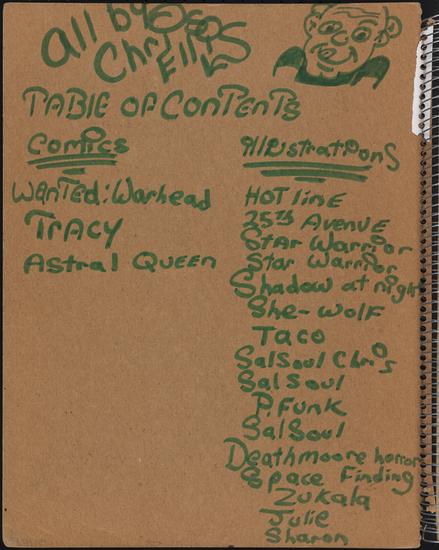 All by
TABLE OF CONTENTS
Comics
Illustrations
Wanted: Warhead
TRACY
Astral QUEEN
HOT linE
25th AvenuE
StAr Warrior
Star Warrior
Shadow at night
She-WolF
Taco
SalSoul Chris
SalSoul
P. Funk
SalSoul
Deathmoore horror
Space Finding
Zukala
Julie
Sharon